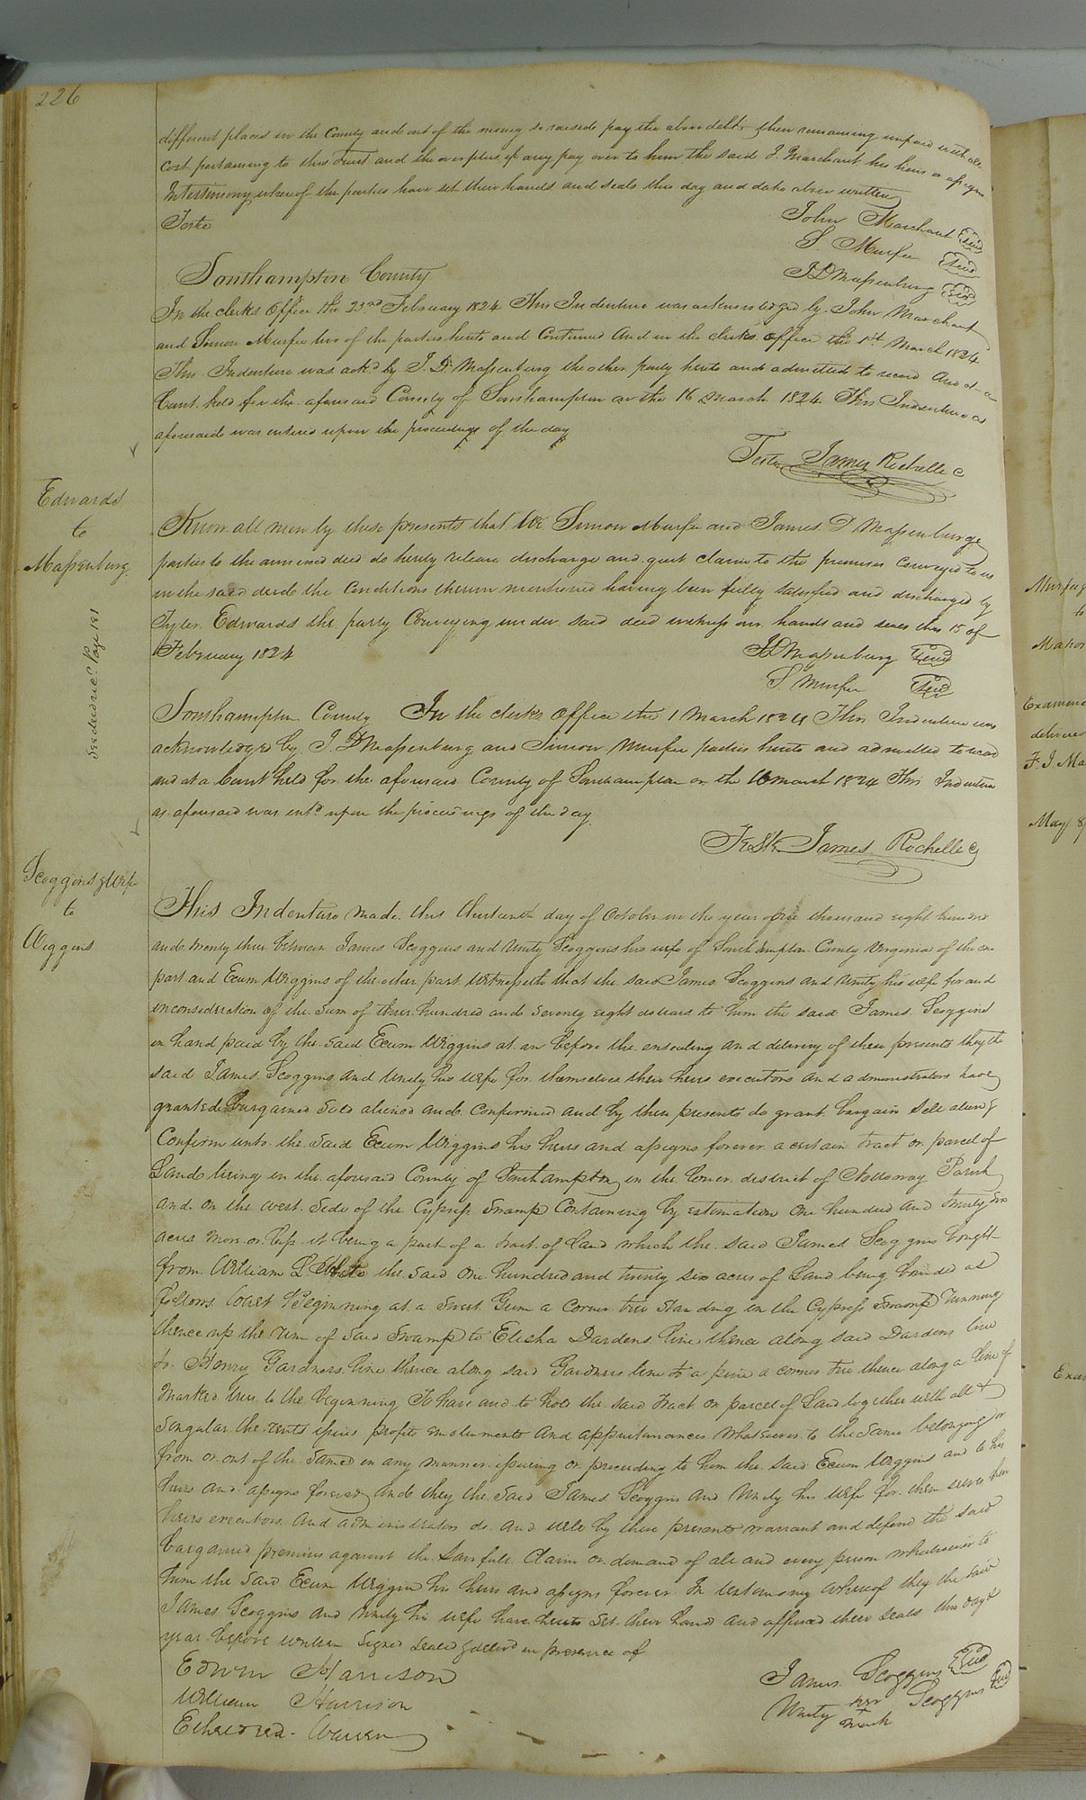 226
different places in the County and out of the money so raised pay the above debts then remaining unpaid with all
cost pertaining to this Trust and the overplus if any pay over to him the said J. Marchant his heirs or assigns
In testimony whereof the parties have set their hands and seals this day and date above written
Teste
John Marchant Seal
S. Murfee Seal
J D Massenburg Seal
Southampton County
In the clerks Office the 23rd February 1824 This Indenture was acknowledged by John Marchant
and Simon Murfee two of the parties hereto and Continued And in the clerks office the 1st March 1824
This Indenture was ackd by J. D. Massenburg the other party hereto and admitted to record And at a
Court held for the aforesaid County of Southampton on the 16 March 1824 This Indenture as
aforesaid was entered upon the proceedings of the day
Teste James Rochelle C
Edwards
to
Massenburg
Know all men by these presents that We Simon Murfee and James D Massenburg
parties to the annexed deed do hereby release discharge and quit claim to the premises Conveyed to us
in the said deed the Conditions therein mentioned having been fully satisfied and discharged by
Edwards the party Conveying under said deed witness our hands and seals this 15 of
February 1824
J D Massenburg Seal
S Murfee Seal
Page 181
Southampton County In the clerks Office the 1 March 1824 This Indenture was
acknowledged by J. D Massenburg and Simon Murfee parties hereto and admitted to record
and at a Court held for the aforesaid County of Southampton on the 16 March 1824 This Indenture
as aforesaid was entd upon the proceedings of the day
Teste James Rochelle C
Scoggins & Wife
to
Wiggins
This Indenture made this thirteenth day of October in the year of one thousand eight hundred
and twenty three between James Scoggins and Unity Scoggins his wife of Southampton County Virginia of the one
part and Exum Wiggins of the other part Witnesseth that the said James Scoggins and Unity his wife for and
in consideration of the sum of three hundred and seventy eight dollars to him the said James Scoggins
in hand paid by the said Exum Wiggins at an before the ensealing and delivery of these presents they the
said James Scoggins and Unity his wife for themselves their heirs executors and administrators have
granted Bargained sold aliened and confirmed and by these presents do grant bargain sell alien &
Confirm unto the said Exum Wiggins his heirs and assigns forever a certain tract or parcel of
Land lying in the aforesaid County of Southampton in the lower district of Nottoway Parish
and on the west side of the Cypress Swamp Containing by estimation One hundred and twenty six
acres more or less it being a part of a tract of land which the said James Scoggins bought
from William L White the said One hundred and twenty six acres of Land being bounded as
follows Beginning at a Sweet Gum a corner tree standing in the Cypress Swamp running
thence up the run of said Swamp to Elisha Dardens line thence along said Dardens line
to Henry Gardners line thence along said Gardners line to a pine a corner tree thence along a line of
marked trees to the beginning To have and to hold the said tract or parcel of Land together with all &
singular the rents issues profits emoluments and appurtenances whatsoever to the same belonging or
from or out of the same in any manner issuing or proceeding to him the said Exum Wiggins and to his
heirs and assigns forever And they the said James Scoggins and Unity his wife for them selves their
heirs executors and administrators do and will by these presents warrant and defend the said
bargained premises against the Lawfull Claim or demand of all and every person whatsoever to
him the said Exum Wiggins his heirs and assigns forever In testimony whereof they the said
James Scoggins and Unity his wife have hereto set their hands and affixed their seals this day &
year before written Signed Sealed & delivd in presence of
Edwin Harrison
William Harrison
Etheldred Warren
James Scoggins Seal
Unity her Scoggins Seal
mark
Murfee
to
Examined
F. J. Ma
May